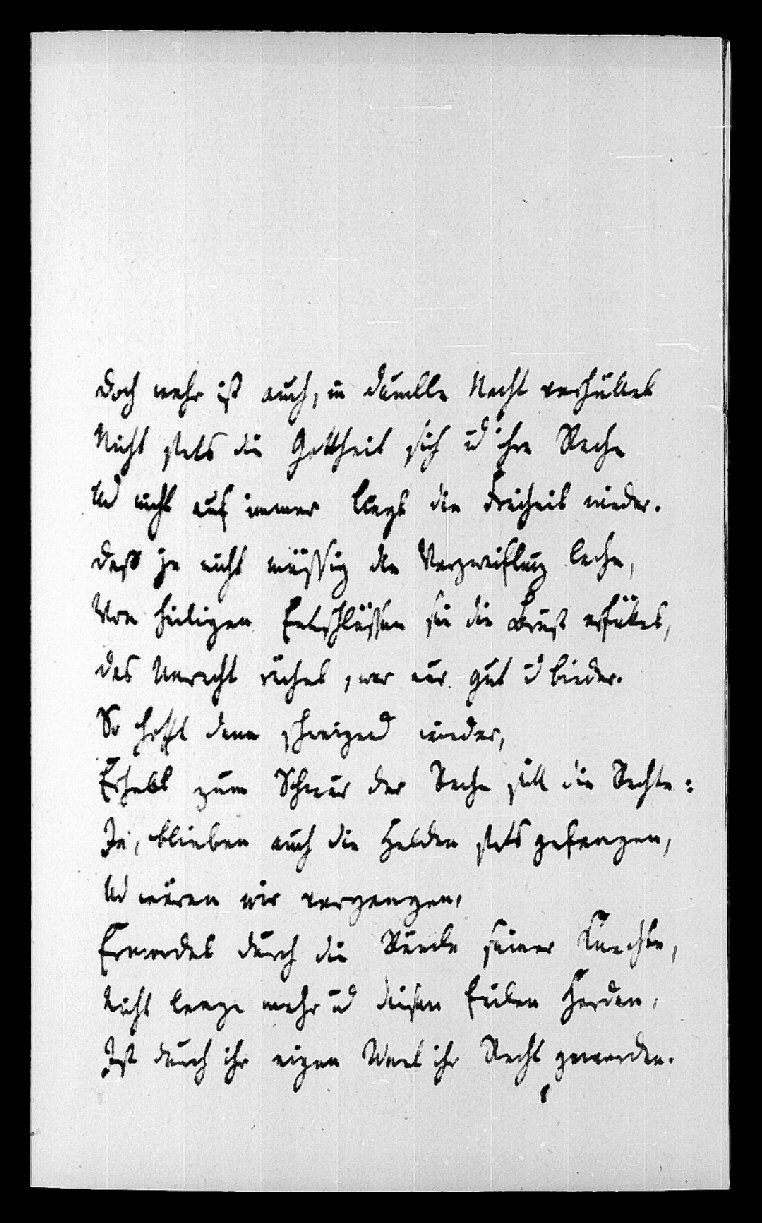 Doch mehr ist auch, in dunkle Nacht verhüllet
Nicht stets die Gottheit sich ud ihre Rache
Ud nicht auf immer liegt die Freiheit nieder.
Daß ja nicht müssig die Verzweiflung lache,
Von heiligen Entschlüssen sei die Brust erfüllet,
Das Unrecht rächet, wer nur gut ud bieder.
So hofft denn schweigend wieder,
Erhebt zum Schwur der Rache still die Rechte:
Ja, blieben auch die Helden stets gefangen,
Ud wären wir vergangen,
Ermordet durch die seiner Knechte,
Nicht lange mehr ud diesen Horden,
Ist durch ihr eigen ihr Recht geworden.